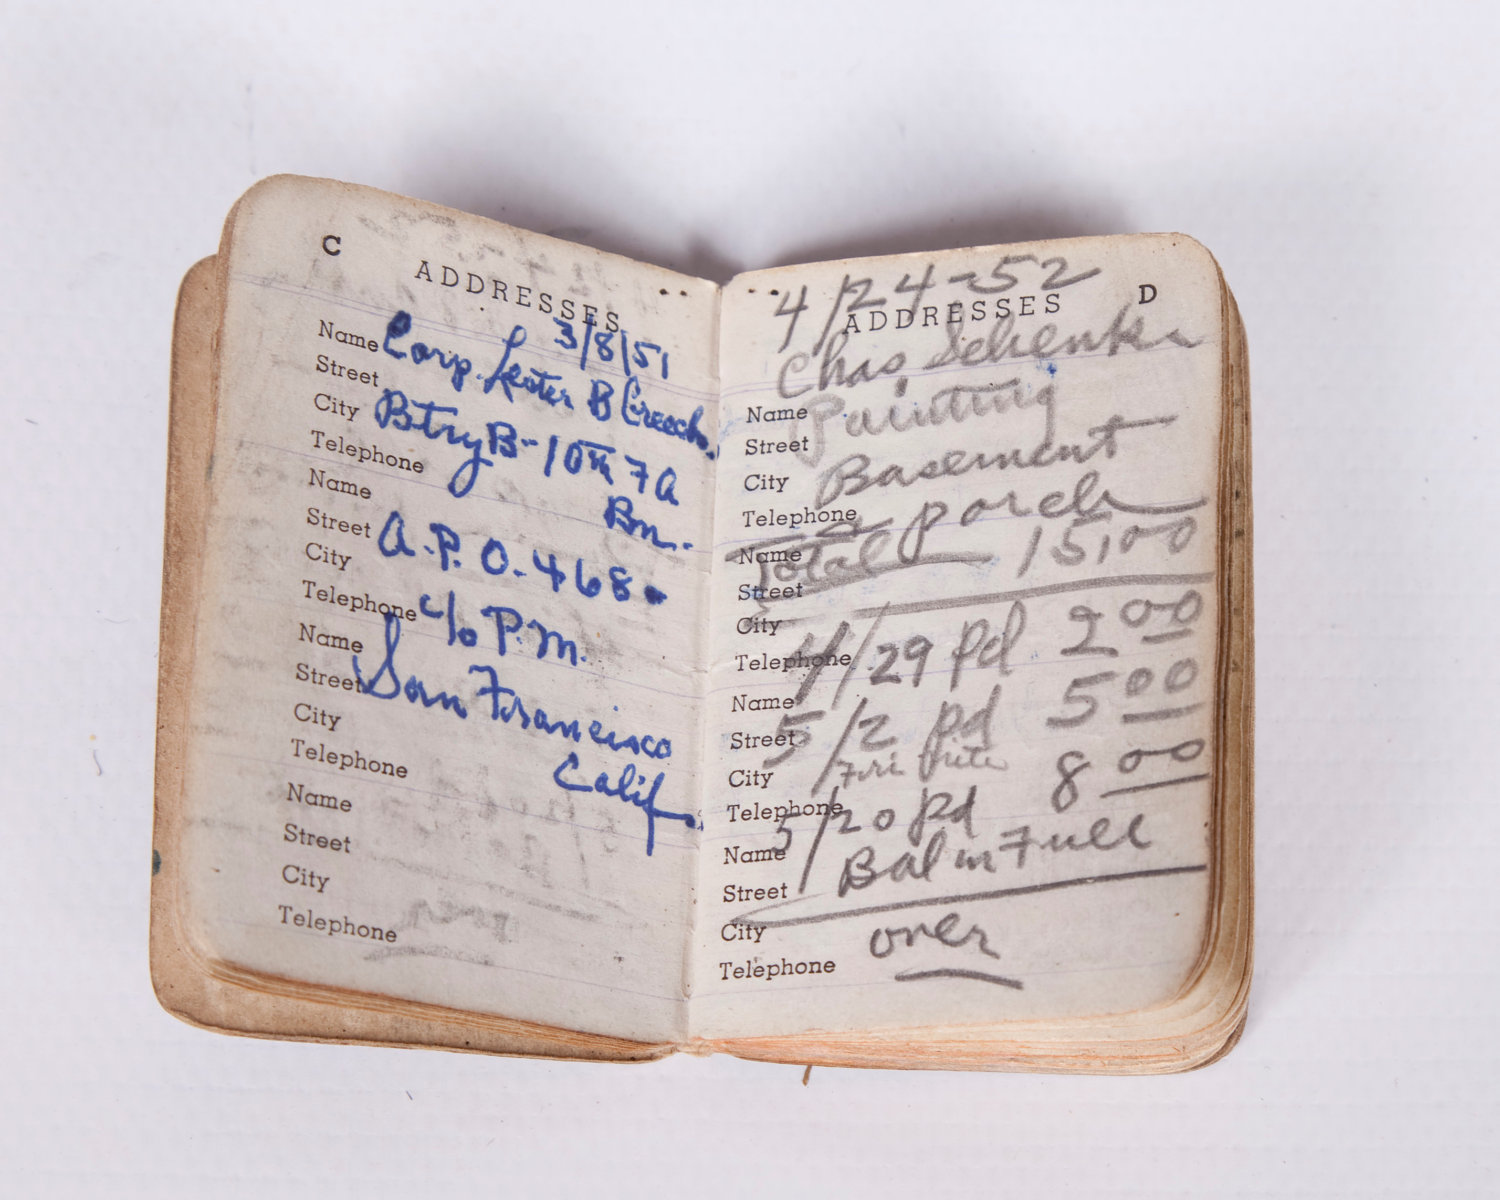 C
ADDRESSES
3/8/51
Name Corp. Lester B Creech.
Street
City Btry B- 10th FA
Telephone
Name Bn.
Street A.P.O. 468
City
Telephone c/o P.M.
Name
Street San Francisco
City
Telephone Calif.
Name
Street
City
Telephone
4/24-52
ADDRESSES D
Chas Schenk
Name Painting
Street
City Basement
Telephone porch
Name Total 15,00
Street
City
Telephone 4/29 pd 2 00
Name
Street 5/2 pd 5 00
City
Telephone 5/20 pd 8 00
Name
Street Bal in Full
City over
Telephone